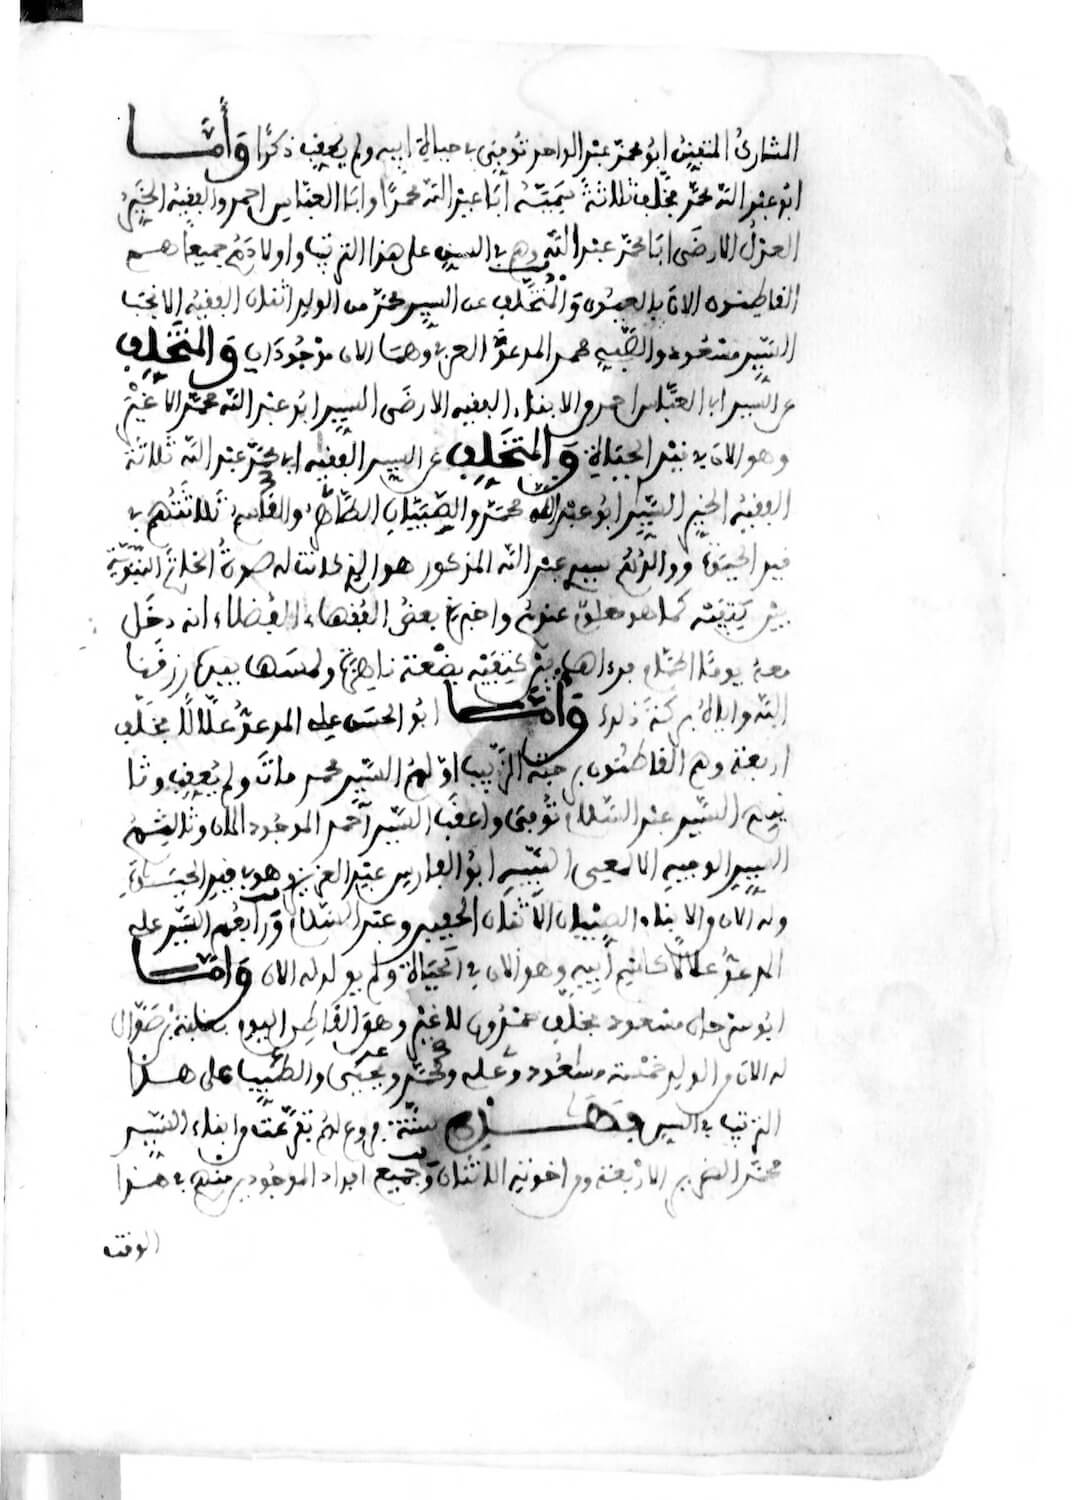 الشارئ المتفنن ابو محمد عبد الواحد توفي في حياة ابيه ولم يعقب ذكرًا وَأَمَّا
ابو عبد الله محمد فخلف ثلاثة سيدي أبا عبد الله محمدًا وابا العباس احمد والفقيه الخير
العدل الارضى ابا محمد عبد الله وهم في السن على هذا الترتيب واولادهم جميعا هم
القاطنون الان بالعيون وَالْمُتَخَلِّف عن السيد محمد من الولد اثنان الفقيه الانجب
السيد مسعود والصبي محمد المدعو العربي وهما الان موجودان وَالمُتَخَلِّف
عن السيد ابي العباس احمد من الابناء الفقيه الارضى السيد ابو عبد الله محمد لا غير
وهو الان في قيد الحياة وَالمتَخَلِّف عن السيد الفقيه ابي محمد عبد الله ثلاثة
الفقيه الخير السيد ابو عبد الله محمد والصبيان الطاهر والقاسم ثلاثتهم في
قيد الحيوة ووالدهم سيدي عبد الله المذكور هو الذي كانت له صورة الخاتم النبوية
بين كتفيه كما هو معلوم عندهم واخبرني بعض الفقهاء الفضلاء انه دخل
معه يومًا الحمام فرءاها بين كتفيه بضعة ناهزة ولمسها بيده رزقنا
الله واياكم بركة ذلك وَأَمَّا ابو الحسن علي المدعو علّالًا فخلف
اربعة وهم القاطنون بـ الزبيب اوّلهم السيد محمد مات ولم يعقب وثا
نيهم السيد عبد السلام توفي واعقب السيد أحمد الموجود الان وثالثهم
السيد الوجيه الالمعي النبيه ابو الفارس عبد العزيز وهو في قيد الحيوة
وله الان من الابناء الصبيان الاثنان الحفيد وعبد السلام وَرابعهم السيد علي
المدعو علالا كاسم أبيه وهو الان في الحياة ولم يولد له الان وَأَمَّا
ابو سرحان مسعود فخلف حمدون لا غير وهو القاطن اليوم بـ صوال
له الان من الولد خمسة مسعود وعلي ومحمد ويحيى والطيب على هذا
الترتيب في السن فهذه ستة فروع لهم تفرعت من ابناء السيد
محمد الضرير الاربعة ومن اخوته الاثنان وجميع افراد الموجود منهم في هذا
الوقت